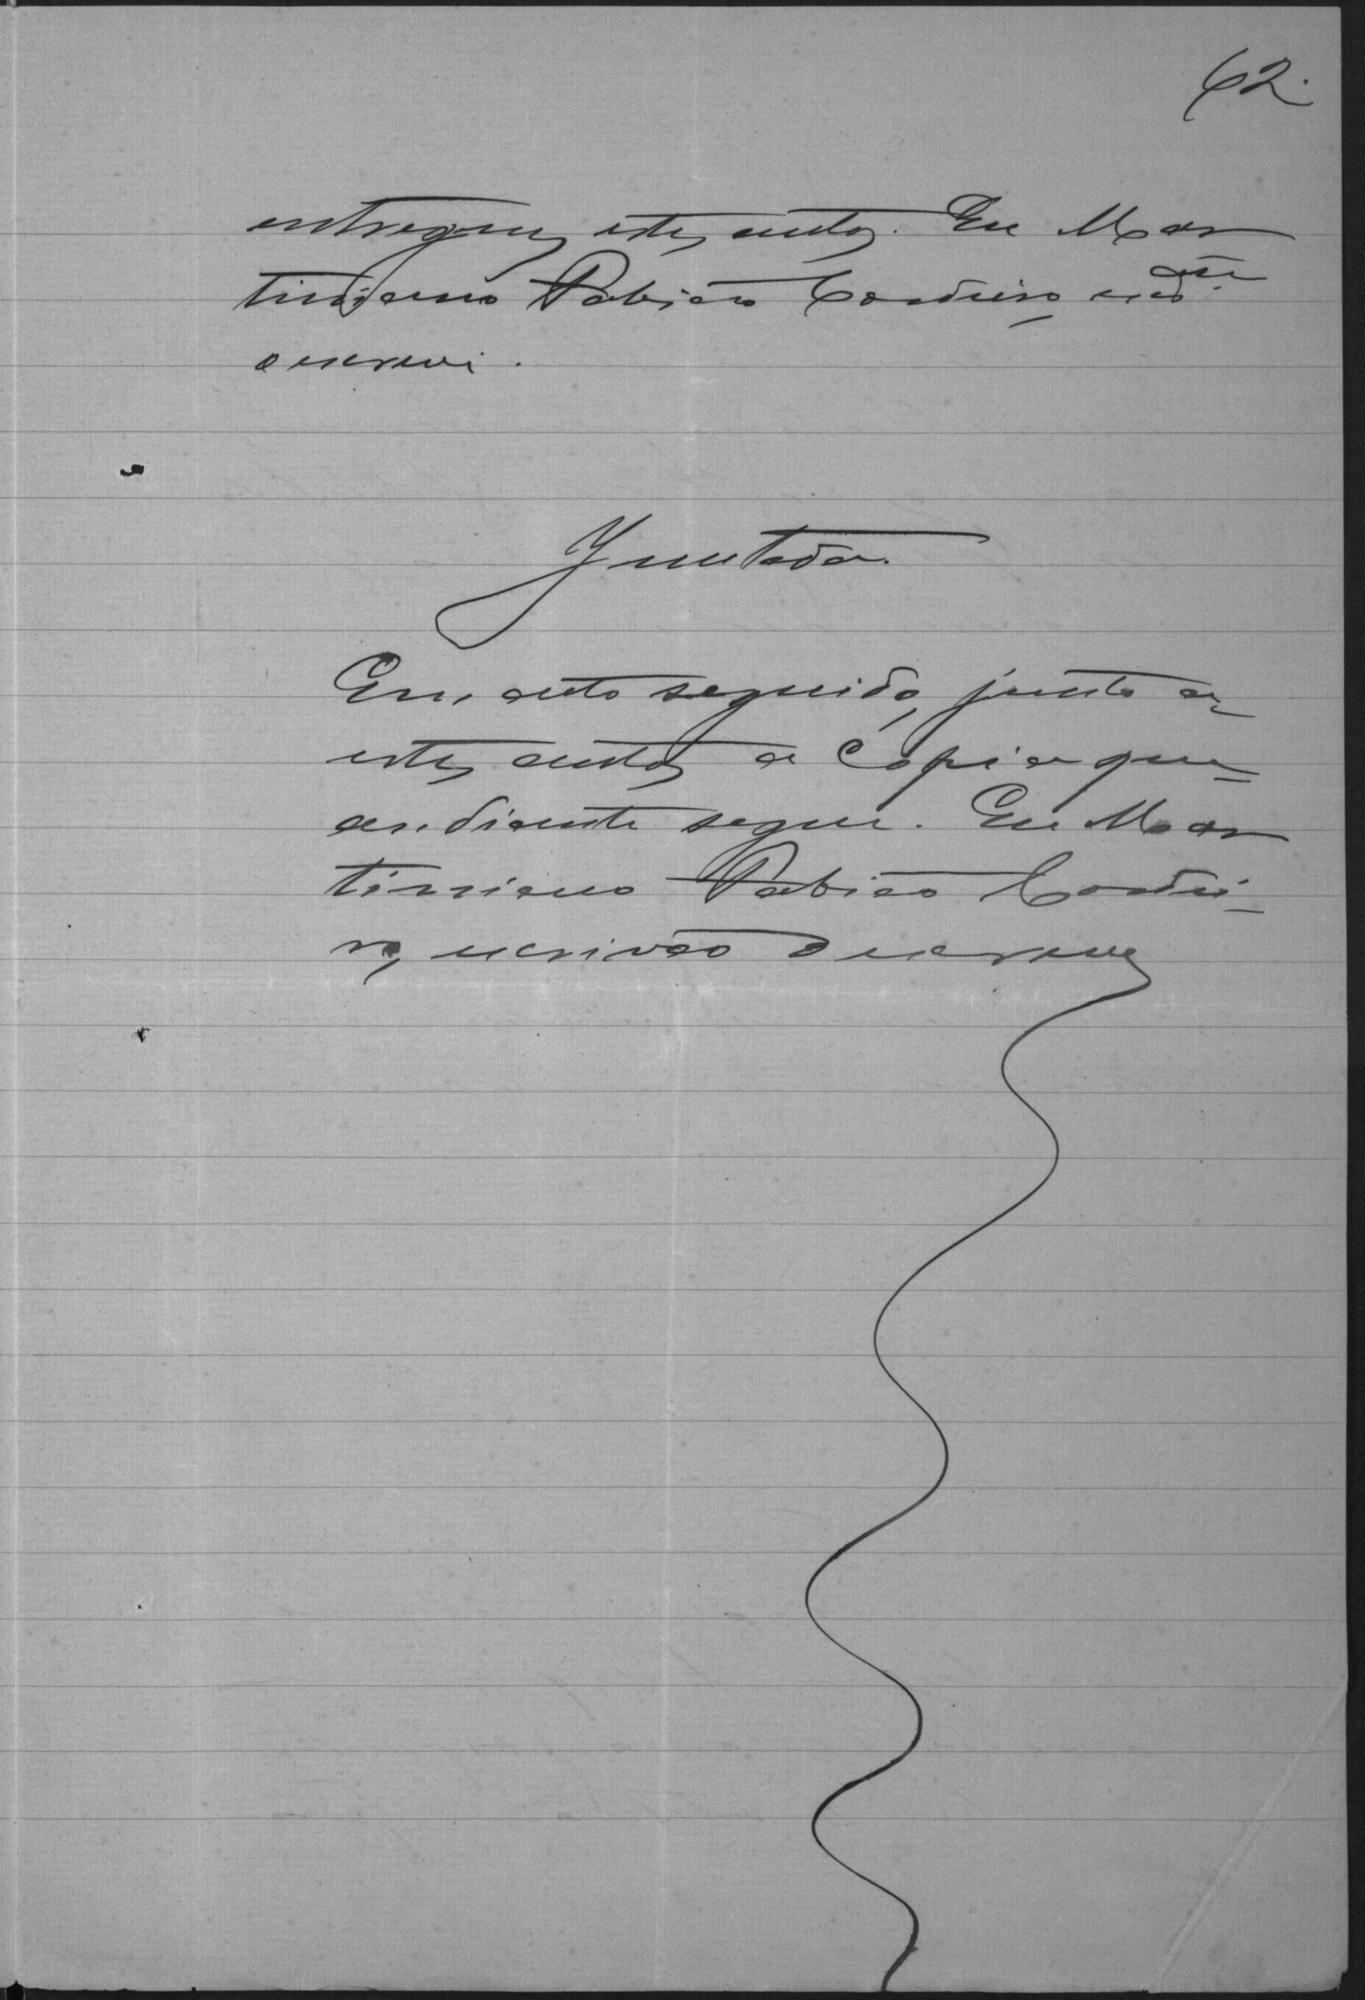 62.
entreguei estes autos. Eu Mar
tiniano Fabião Cordeiro, escr
o escrevi.
Juntada.
Em acto seguido, junto a
estes autos a copia que
adiante segue. Eu Mar
tiniano Fabião Cordei-
ro, escrivão o escrevi